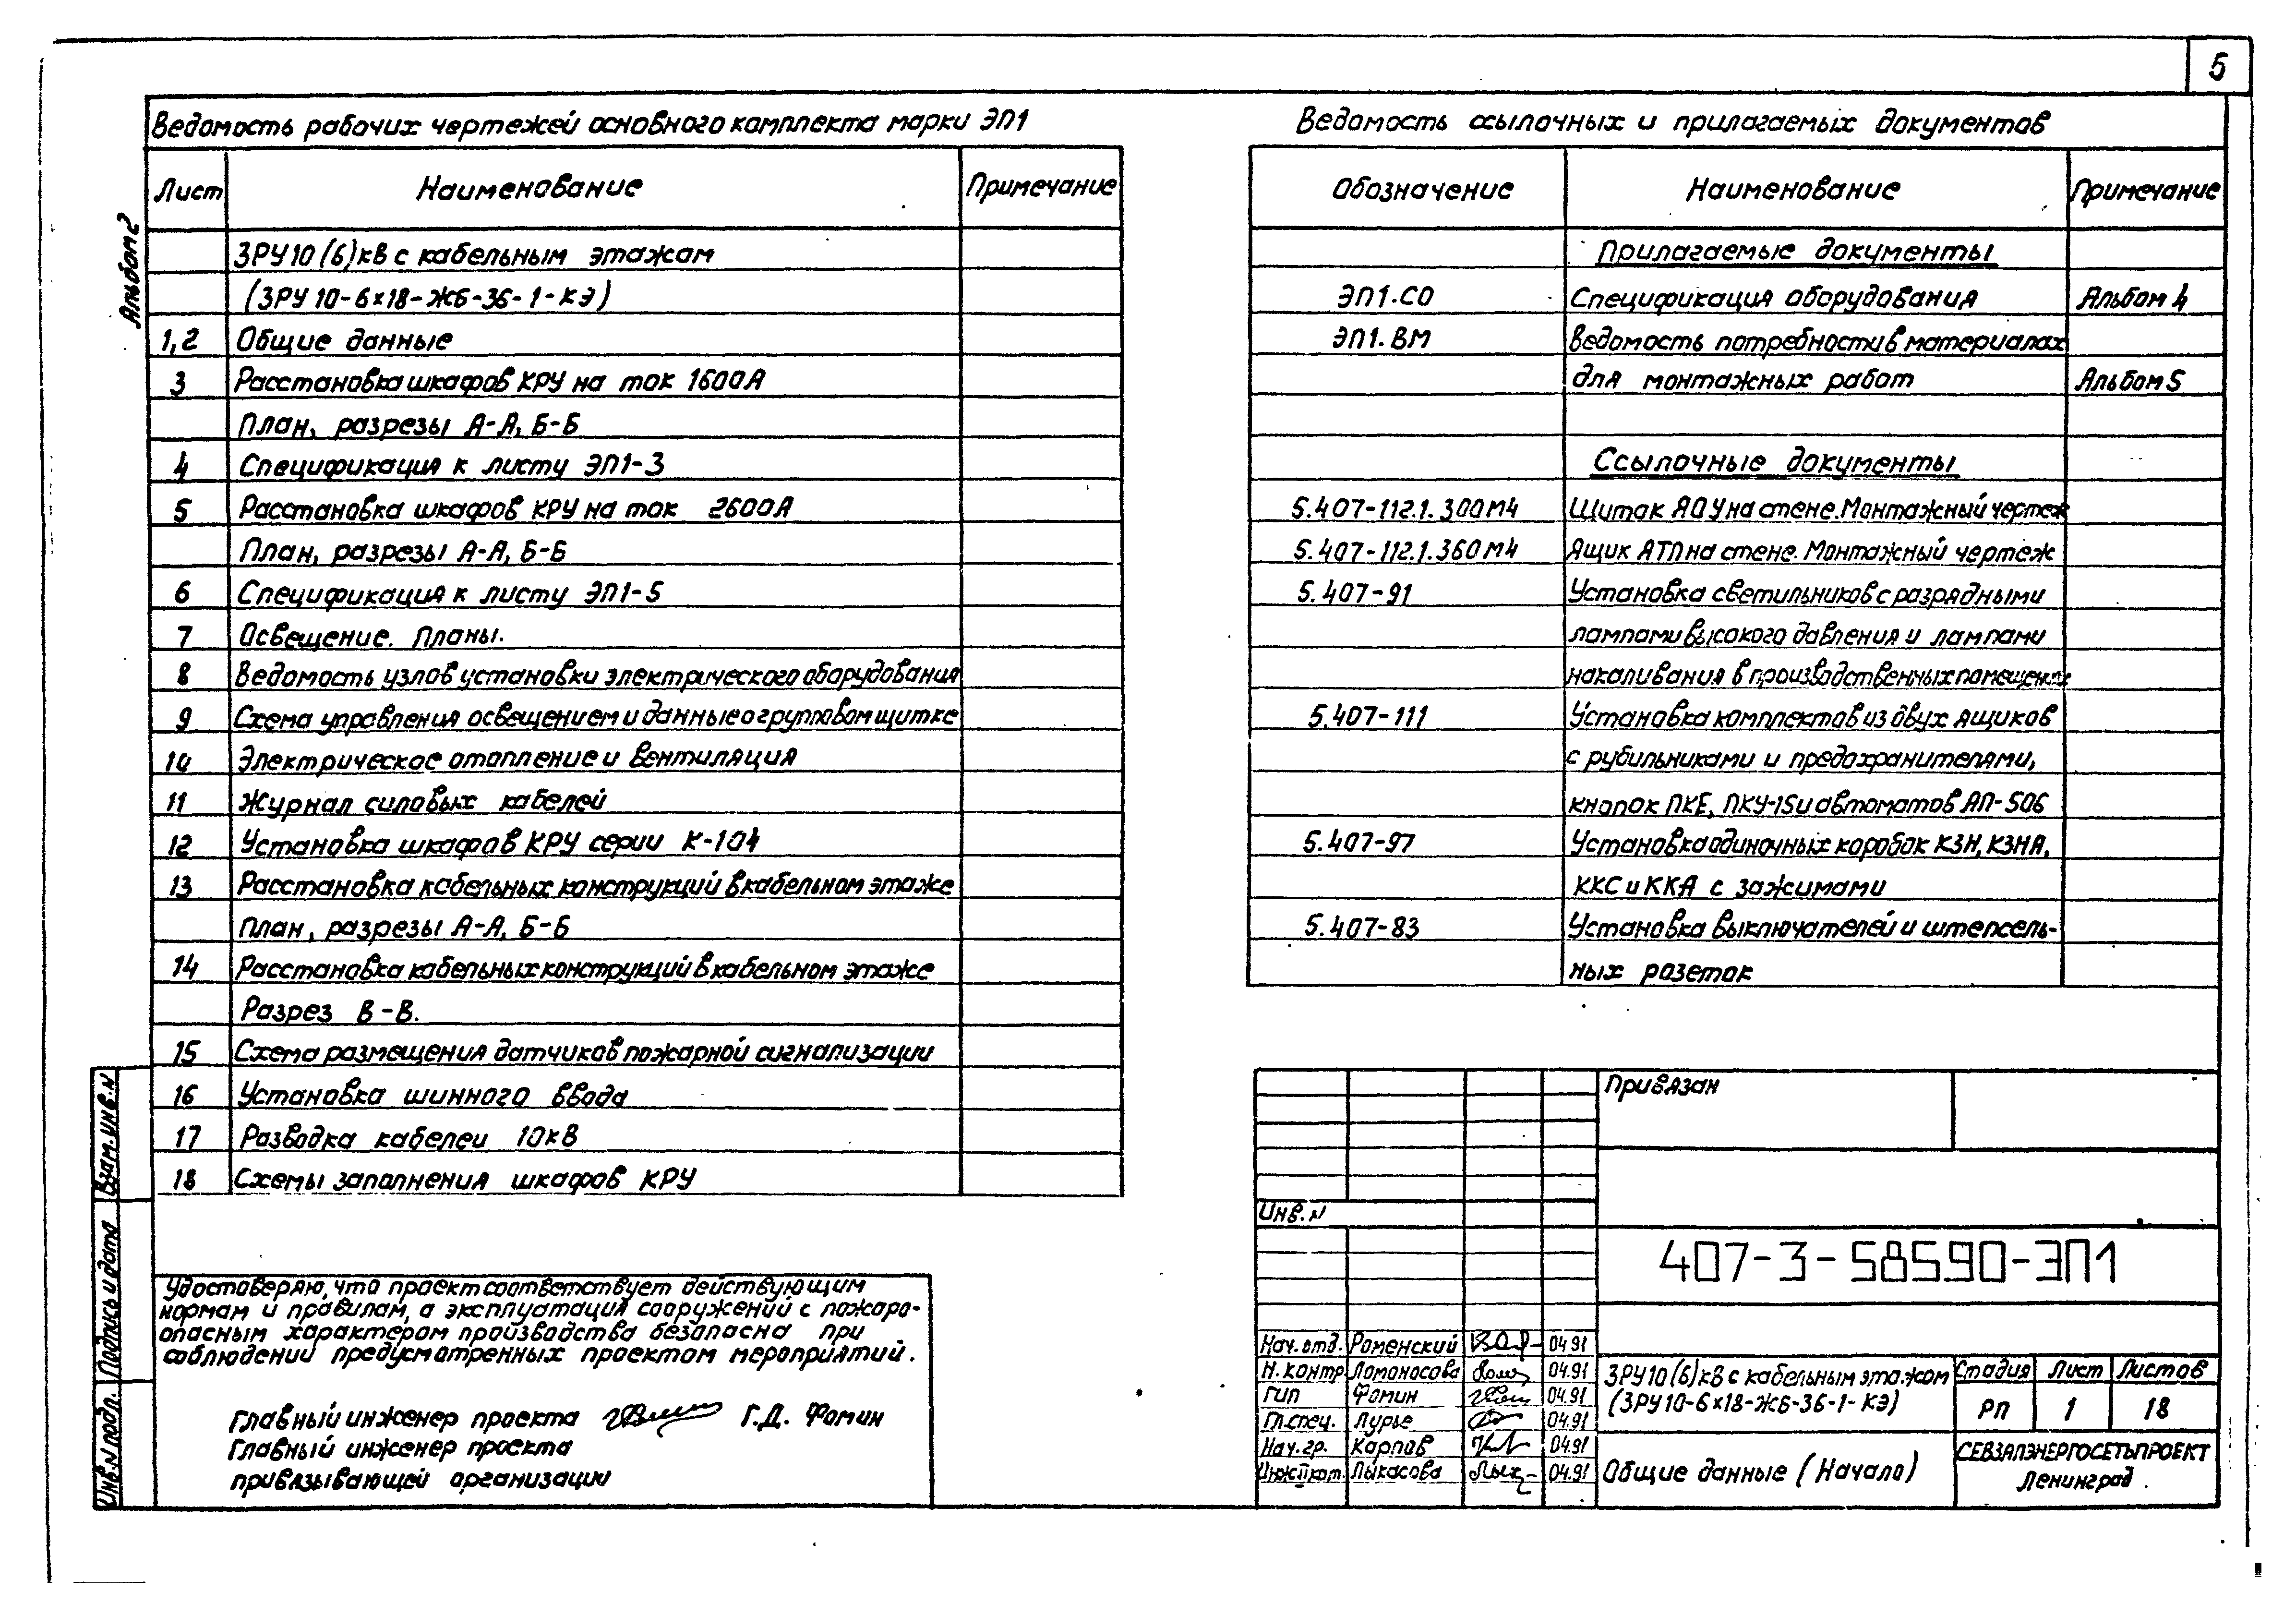 5
Альбом 2
Ведомость рабочих чертежей основного комплекта марки ЭП1
Лист Наименование Примечание
ЗРУ 10 (6) кВ с кабельным этажом
(ЗРУ 10-6х18-ЖБ-36-1-КЭ)
1,2 Общие данные
3 Расстановка шкафов КРУ на ток 1600А
План, разрезы А-А, Б-Б
4 Спецификация к листу ЭП1-3
5 Расстановка шкафов КРУ на ток 2600А
План, разрезы А-А, Б-Б
6 Спецификация к листу ЭП1-5
7 Освещение. Планы.
8 Ведомость узлов установки электрического оборудования
9 Схема управления освещением и данные о групповом щитке
10 Электрическое отопление и вентиляция
11 Журнал силовых кабелей
12 Установка шкафов КРУ серии К-104
13 Расстановка кабельных конструкций в кабельном этаже
План, разрезы А-А, Б-Б
14 Расстановка кабельных конструкций в кабельном этаже
Разрез В-В.
15 Схема размещения датчиков пожарной сигнализации
16 Установка шинного ввода
17 Разводка кабелей 10кВ
18 Схемы заполнения шкафов КРУ
Ведомость ссылочных и прилагаемых документов
Обозначение Наименование Примечание
Прилагаемые документы
ЭП1.СО Спецификация оборудования Альбом 4
ЭП1.ВМ Ведомость потребности в материалах
для монтажных работ Альбом 5
Ссылочные документы
5.407-112.1.300М4 Щиток ЯОУ на стене. Монтажный чертеж
5.407-112.1.360М4 Ящик ЯТП на стене. Монтажный чертеж
5.407-91 Установка светильников с разрядными
лампами высокого давления и лампами
накаливания в производственных помещения
5.407-111 Установка комплектов из двух ящиков
с рубильниками и предохранителями,
кнопок ПКЕ, ПКУ-15 и автоматов АП-50б
5.407-97 Установка одиночных коробок КЗН, КЗНА,
ККС и ККА с зажимами
5.407-83 Установка выключателей и штепсель-
ных розеток
Удостоверяю, что проект соответствует действующим
нормам и правилам, а эксплуатация сооружений с пожаро-
опасным характером производства безопасна при
соблюдении предусмотренных проектом мероприятий.
Главный инженер проекта Г.Д. Фомин
Главный инженер проекта
привязывающей организации
Взам. инв. N
Подпись и дата
Инв. N подл.
Привязан
Инв. N
407-3-58590-ЭП1
Нач. отд. Роменский 04.91
Н. контр Ломоносова 04.91
ГИП Фомин 04.91
Гл. спец. Лурье 04.91
Нач. гр. Карпов 04.91
Инж II кат. Лыкасова 04.91
ЗРУ 10 (6) кВ с кабельным этажом
(ЗРУ 10-6х18-ЖБ-36-1-КЭ)
Стадия Лист Листов
РП 1 18
Общие данные (Начало)
СЕВЗАПЭНЕРГОСЕТЬПРОЕКТ
Ленинград